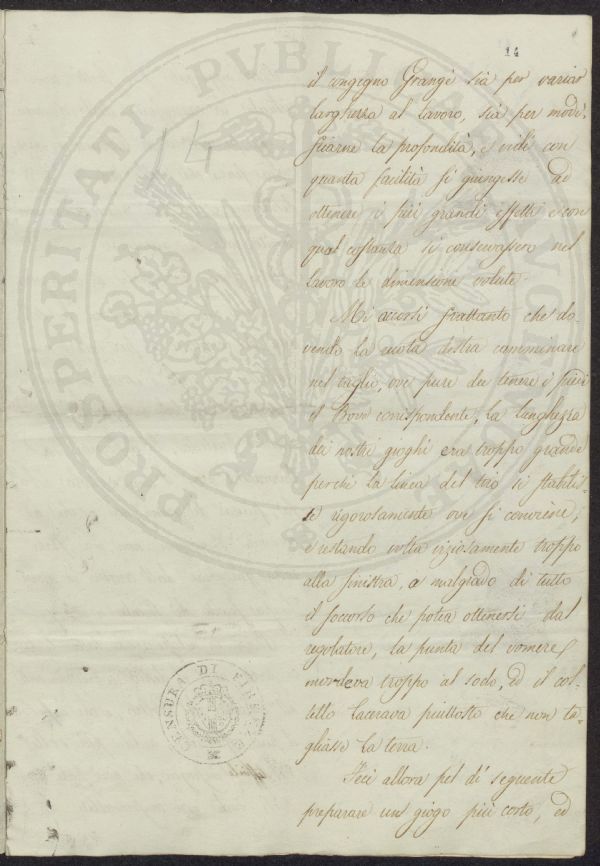 14
14
il ongegno Grangè sià per variar
larghezza al lavoro, sià per modi-
ficarne la profondità, e vidi con
quanta facilità si giungesse ad
ottenere i più grandi effetti e con
qual costanza si conservassero nel
lavoro le dimensione volute.
Mi accorsi frattanto che do-
vendo la ruota destra camminare
nel taglio, ove pure dee tenere i piedi
il Bove corrispondente, la lunghezza
dei nostri gioghi era troppo grande
perchè la linea del tiro si stabilis-
se rigorosamente ove si conviene;
e restando volta viziosamente troppo
alla sinistra, a malgrado di tutto
il soccorso che potea ottenersi dal
regolatore, la punta del vomere
mordeva troppo al sodo, ed il col-
tello lacerava piuttosto che non ta-
gliasse la terra.
Feci allora pel dì seguente
preparare un giogo più corto, ed
CENSURA DI FIRENZE
PROSPERITATI PUBLICAE